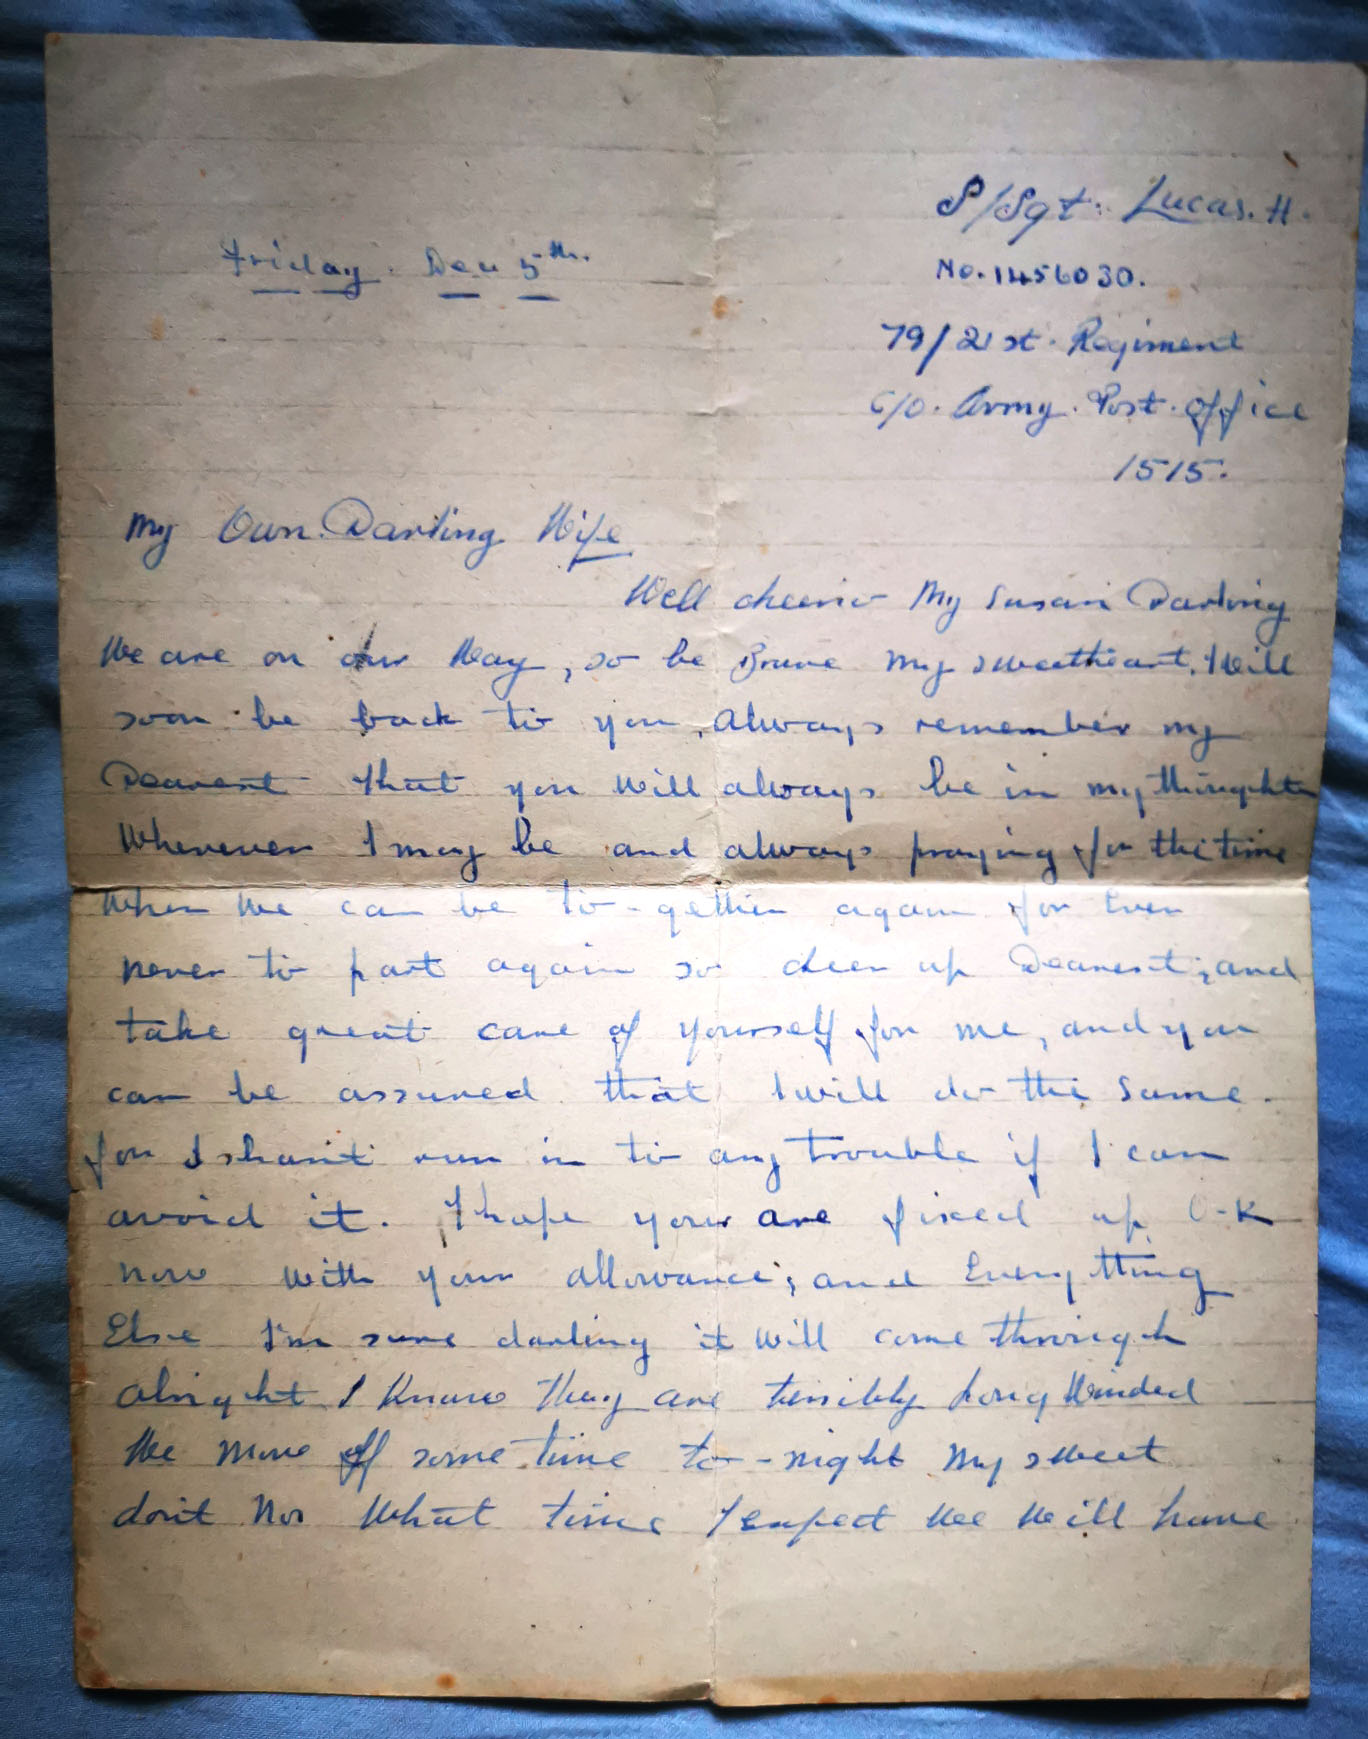 S/Sgt. Lucas. H.
Friday. Dec 5th.
No. 1456030.
79/21st. Regiment
c/o. Army. Post. Office
1515.
My Own. Darling. Wife
Well cheerio My Susan Darling
We are on our Way, so be Brave my sweetheart. I Will
soon be back to you, Always remember my
Dearest that you Will always be in my thoughts
Wherever I may be and always praying for the time
When We can be to-gether again for Ever
never to part again so cheer up Dearest; and
take great care of yourself for me, and you
can be assured that I will do the Same.
for I shan't run in to any trouble if I can
avoid it. I hope your are fixed up O-K
now with your allowance; and Every thing
Else I'm sure darling it Will come through
alright I Know they are terribly Long Winded
We move off some time to-night My sweet
don't No What time I expect We Will have